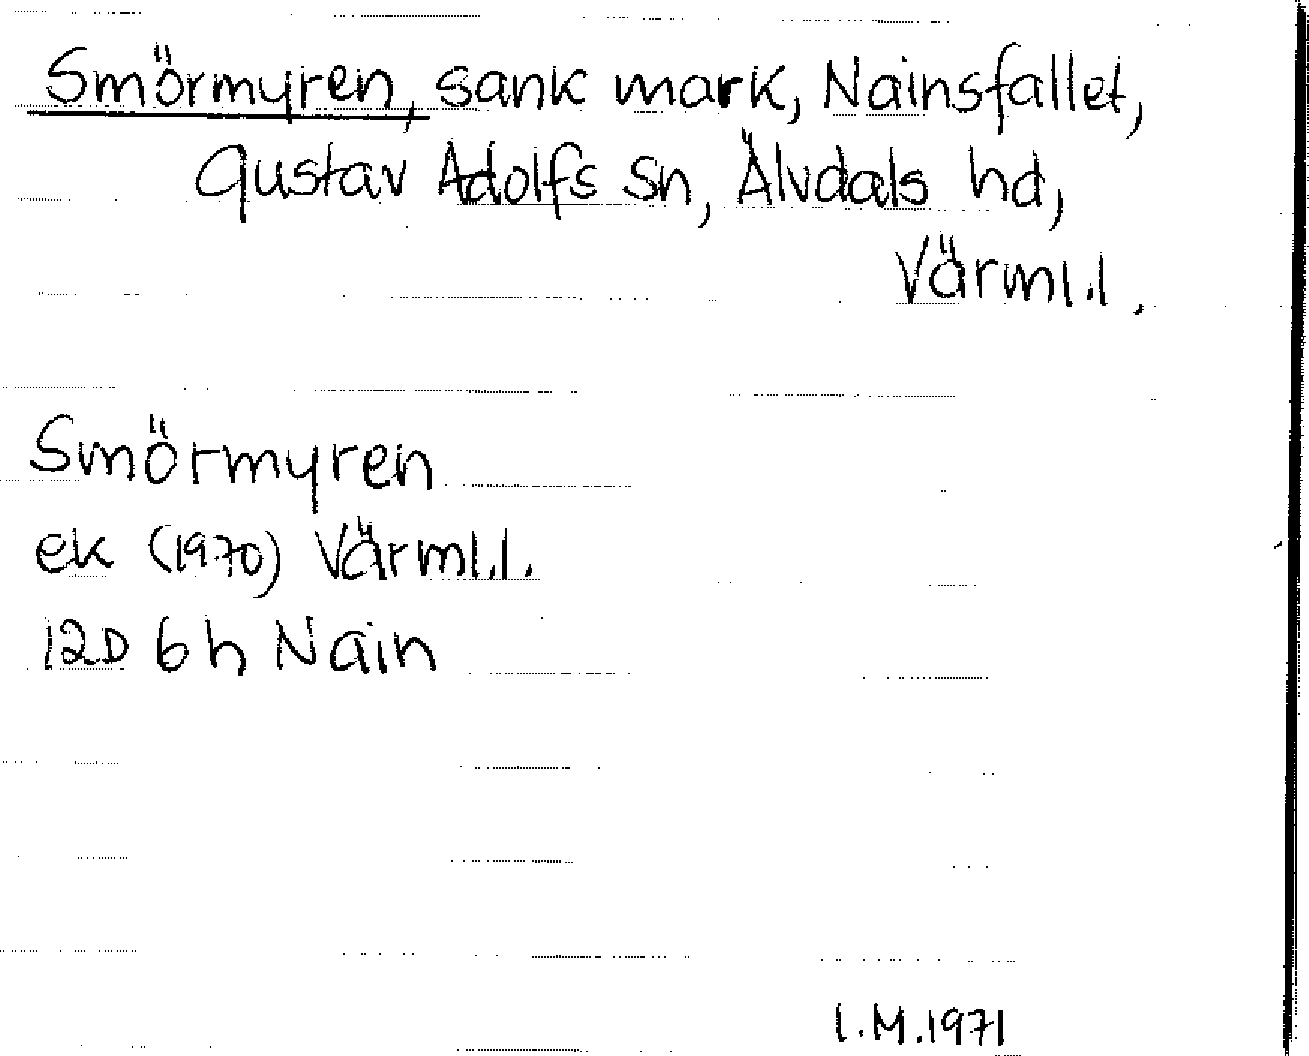 Smörmyren, sank mark, Nainsfallet,
Gustav Adolfs sn, Älvdals hd,
Värml.l.
Smörmyren
ek (1970) Värml.l.
12D 6h Nain
I.M.1971